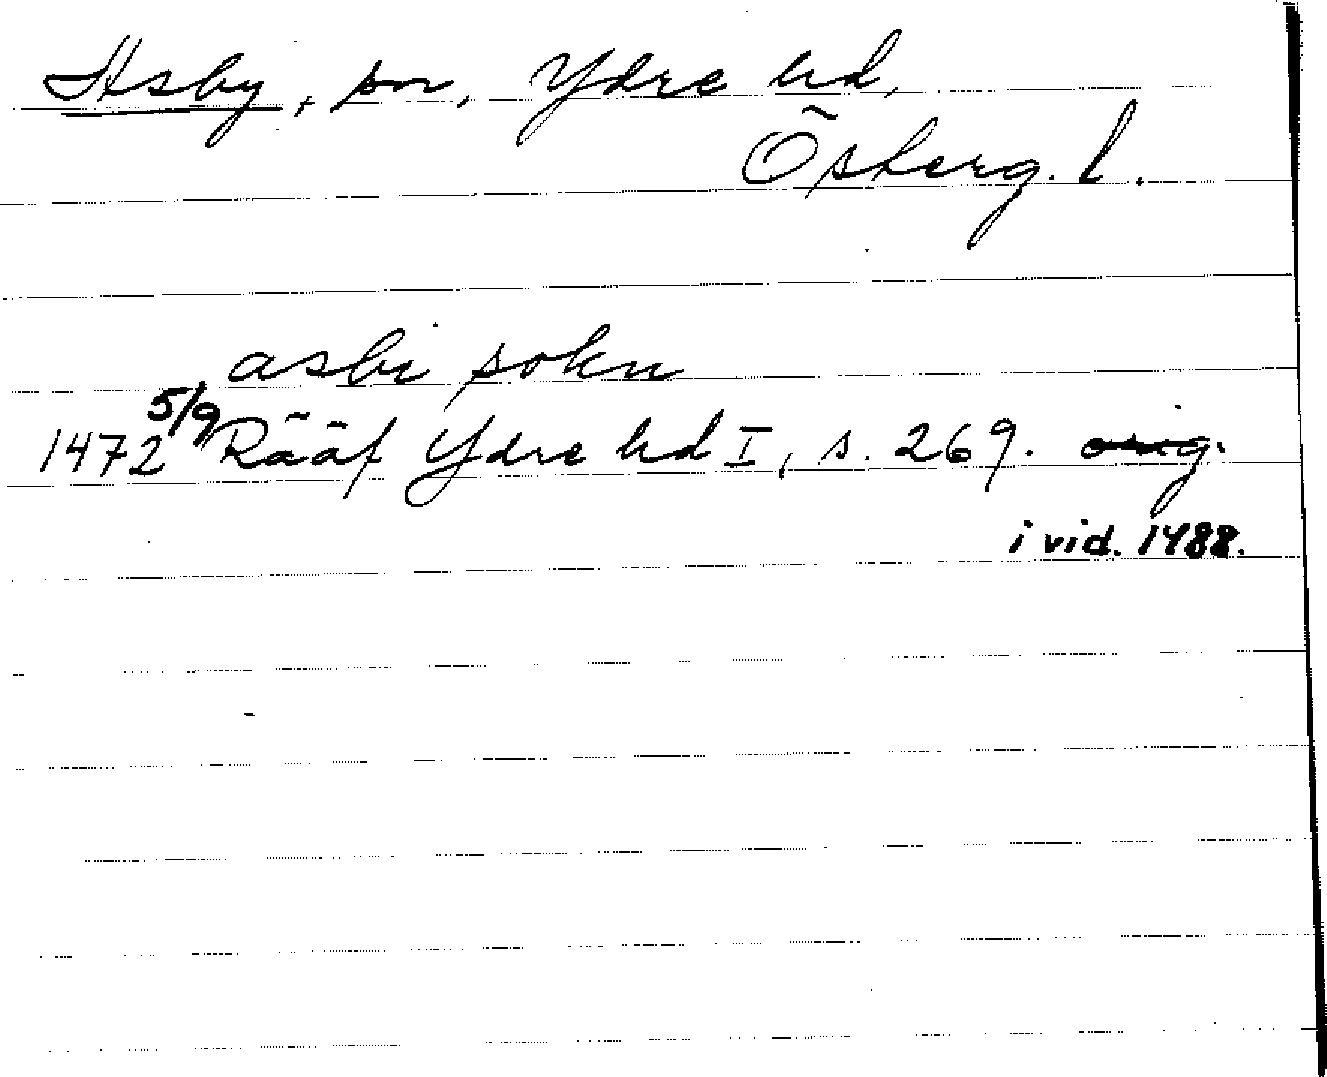 Asby, sn, Ydre hd,
Österg. l.
asbi sokn
1472 5/9 Rääf Ydre hd I, s. 269. orig.
i vid. 1488.